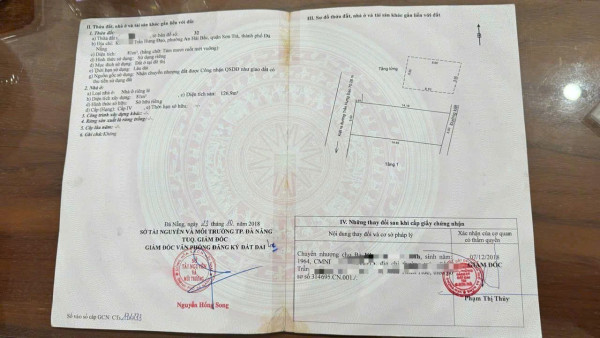 II. Thửa đất, nhà ở và tài sản khác gắn liền với đất
1. Thửa đất:
a) Thửa đất tờ bản đồ số
b) Địa chỉ: Trần Hưng Đạo, phường An Hải Bắc, quận Sơn Trà, thành phố Đà
Nẵng.
c) Diện tích: (bằng chữ: Tám mươi mét vuông)
d) Hình thức sử dụng: Sử dụng riêng
đ) Mục đích sử dụng: Đất ở tại đô thị
e) Thời hạn sử dụng: Lâu dài
g) Nguồn gốc sử dụng: Nhận chuyển nhượng đất được Công nhận QSDĐ như giao đất có
thu tiền sử dụng đất
2. Nhà ở:
a) Loại nhà ở: Nhà ở riêng lẻ
b) Diện tích xây dựng: c) Diện tích sàn: 126,9m²
d) Hình thức sở hữu: Sở hữu riêng
đ) Cấp (Hạng): Cấp IV e) Thời hạn sở hữu: -/-
3. Công trình xây dựng khác: -/-
4. Rừng sản xuất là rừng trồng: -/-
5. Cây lâu năm: -/-
6. Ghi chú: Không.
Đà Nẵng, ngày 23 tháng 10 năm 2018
SỞ TÀI NGUYÊN VÀ MÔI TRƯỜNG TP. ĐÀ NẴNG
TUQ. GIÁM ĐỐC
GIÁM ĐỐC VĂN PHÒNG ĐĂNG KÝ ĐẤT ĐAI
SỞ
TÀI NGUYÊN
VÀ
MÔI TRƯỜNG
Nguyễn Hồng Song
Số vào sổ cấp GCN:
III. Sơ đồ thửa đất, nhà ở và tài sản khác gắn liền với đất
B
Tầng lửng
Tầng 1
IV. Những thay đổi sau khi cấp giấy chứng nhận
Nội dung thay đổi và cơ sở pháp lý
Xác nhận của cơ quan
có thẩm quyền
Chuyển nhượng cho bà sinh năm
1964, CMND địa chỉ
Trần
sơ số 314695.CN.001./.
07/12/2018
GIÁM ĐỐC
Phạm Thị Thủy